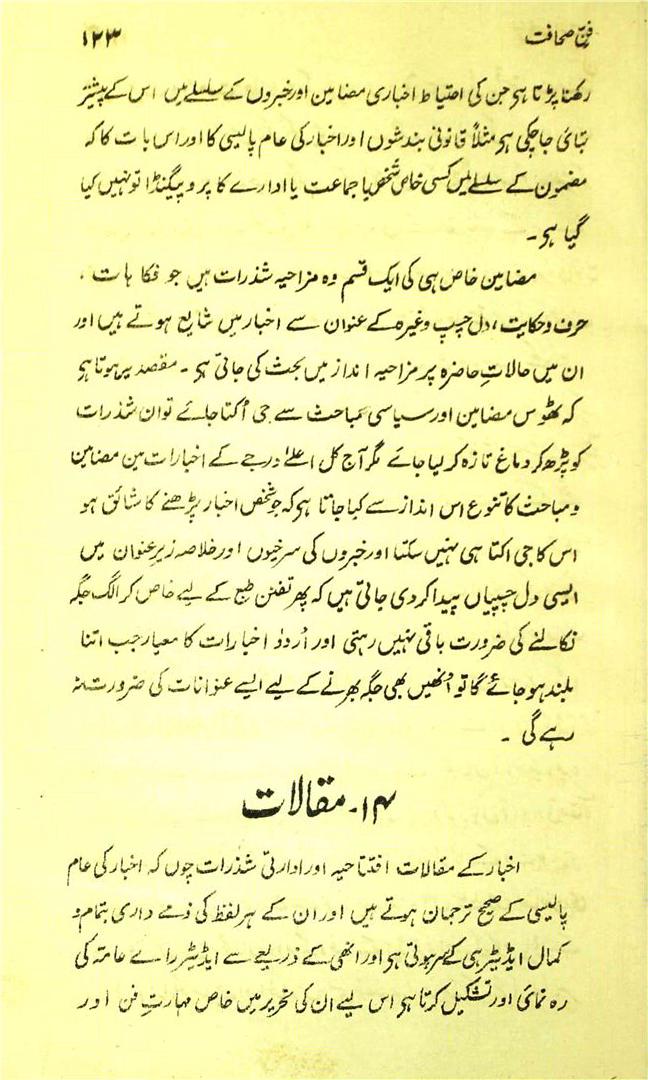 فنِ صحافت ۱۲۳
رکھنا پڑتا ہی جن کی احتیاط اخباری مضامین اور خبروں کے سلسلے میں اس کے پیشتر
بتائی جاچکی ہی مثلاً قانونی بندشوں اور اخبار کی عام پالیسی کا اور اس بات کا کہ
مضمون کے سلسلے میں کسی خاص شخص یا جماعت یا ادارے کا پروپیگنڈا تو نہیں کیا
گیا ہی۔
مضامین خاص ہی کی ایک قسم وہ مزاحیہ شذرات ہیں جو فکاہات ،
حرف و حکایت ، دل چسپ وغیرہ کے عنوان سے اخبار میں شایع ہوتے ہیں اور
ان میں حالاتِ حاضرہ پر مزاحیہ انداز میں بحث کی جاتی ہی ۔ مقصد یہ ہوتا ہی
کہ ٹھوس مضامین اور سیاسی مباحث سے جی اُکتا جائے تو ان شذرات
کو پڑھ کر دماغ تازہ کر لیا جائے مگر آج کل اعلےٰ درجے کے اخبارات میں مضامین
و مباحث کا تنوع اس انداز سے کیا جاتا ہی کہ جو شخص اخبار پڑھنے کا شائق ہو
اس کا جی اکتا ہی نہیں سکتا اور خبروں کی سرخیوں اور خلاصہ زیرِ عنوان میں
ایسی دل چسپیاں پیدا کردی جاتی ہیں کہ پھر تفننِ طبع کے لیے خاص کر الگ جگہ
نکالنے کی ضرورت باقی نہیں رہتی اور اُردو اخبارات کا معیار جب اتنا
بلند ہو جائے گا تو اُنھیں بھی جگہ بھرنے کے لیے ایسے عنوانات کی ضرورت نہ
رہے گی ۔
۱۴۔ مقالات
اخبار کے مقالات افتتاحیہ اور ادارتی شذرات چوں کہ اخبار کی عام
پالیسی کے صحیح ترجمان ہوتے ہیں اور ان کے ہر لفظ کی ذمے داری بتمام و
کمال ایڈیٹر ہی کے سر ہوتی ہی اور انھی کے ذریعے سے ایڈیٹر راے عامہ کی
رہ نمائی اور تشکیل کرتا ہی اس لیے ان کی تحریر میں خاص مہارتِ فن اور